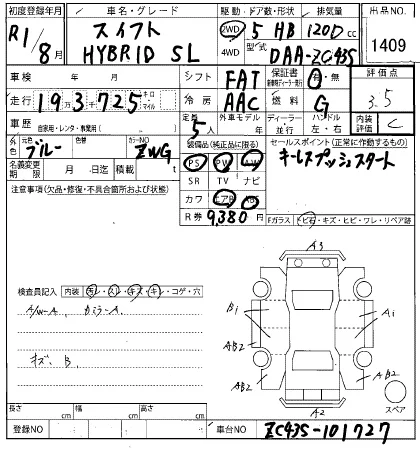 初度登録年月
車名・グレード
駆動・ドア数・形状
排気量
出品NO.
R1/8月
スイフト
HYBRID SL
2WD
4WD
5 HB
1200
型式
DAA-ZC43S
1409
車検 年 月
シフト
FAT
保証書
有・無
評価点
走行
193千725
キロ
マイル
冷房
AAC
燃料
G
3.5
車歴
自家用・レンタ・教業用( )
定員
5人
外車モデル
年
ディーラー・並行
ハンドル
左・右
内装評価
C
外色
元色
ブルー
色替
カラーNO
ZWG
装備品(純正品に限る)
セールスポイント(正常に作動するもの)
キーレスプッシュスタート
名義変更期限
月 日迄
積載
t
PS
PW
AW
SR
TV
ナビ
カワ
エアB
R券
9,380円
注意事項(欠品・修復・不具合箇所および状態)
Fガラス
トビ石・キズ・ヒビ・ワレ・リペア跡
検査員記入
内装
汚レ・スレ・キズ・キレ・コゲ・穴
A/W-A
カミラーA
キズ、B
A3
Bi
Ai
AB2
AB2
AB2
AB2
A2
スペア
長さ
cm
幅
cm
高さ
cm
登録NO
車台NO
ZC43S-101727